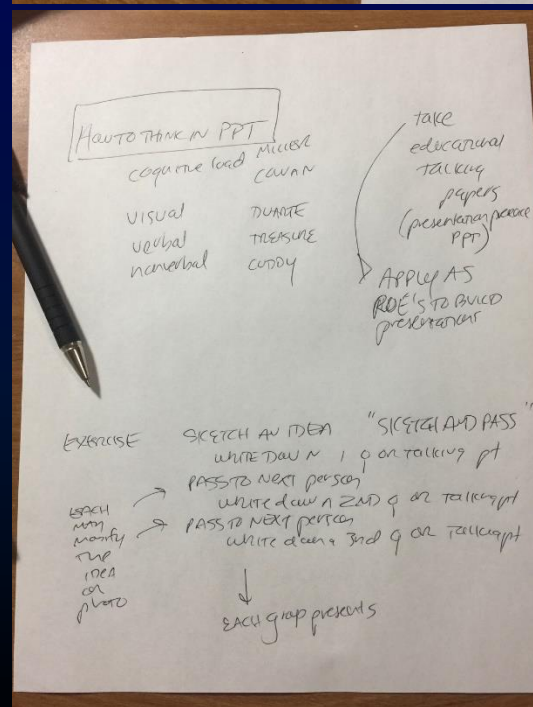 HOW TO THINK IN PPT
cognitive load MILLER
COWAN
visual DUARTE
verbal TREASURE
nonverbal CUDDY
take
educational
talking
papers
(presentation practice
PPT)
APPLY AS
ROE'S TO BUILD
presentations
EXERCISE SKETCH AN IDEA "SKETCH AND PASS"
WRITE DOWN 1 q or talking pt
PASS TO NEXT person
write down 2ND q or talking pt
PASS TO NEXT person
write down a 3rd q or talking pt
EACH
may
modify
THE
IDEA
OR
photo
EACH group presents